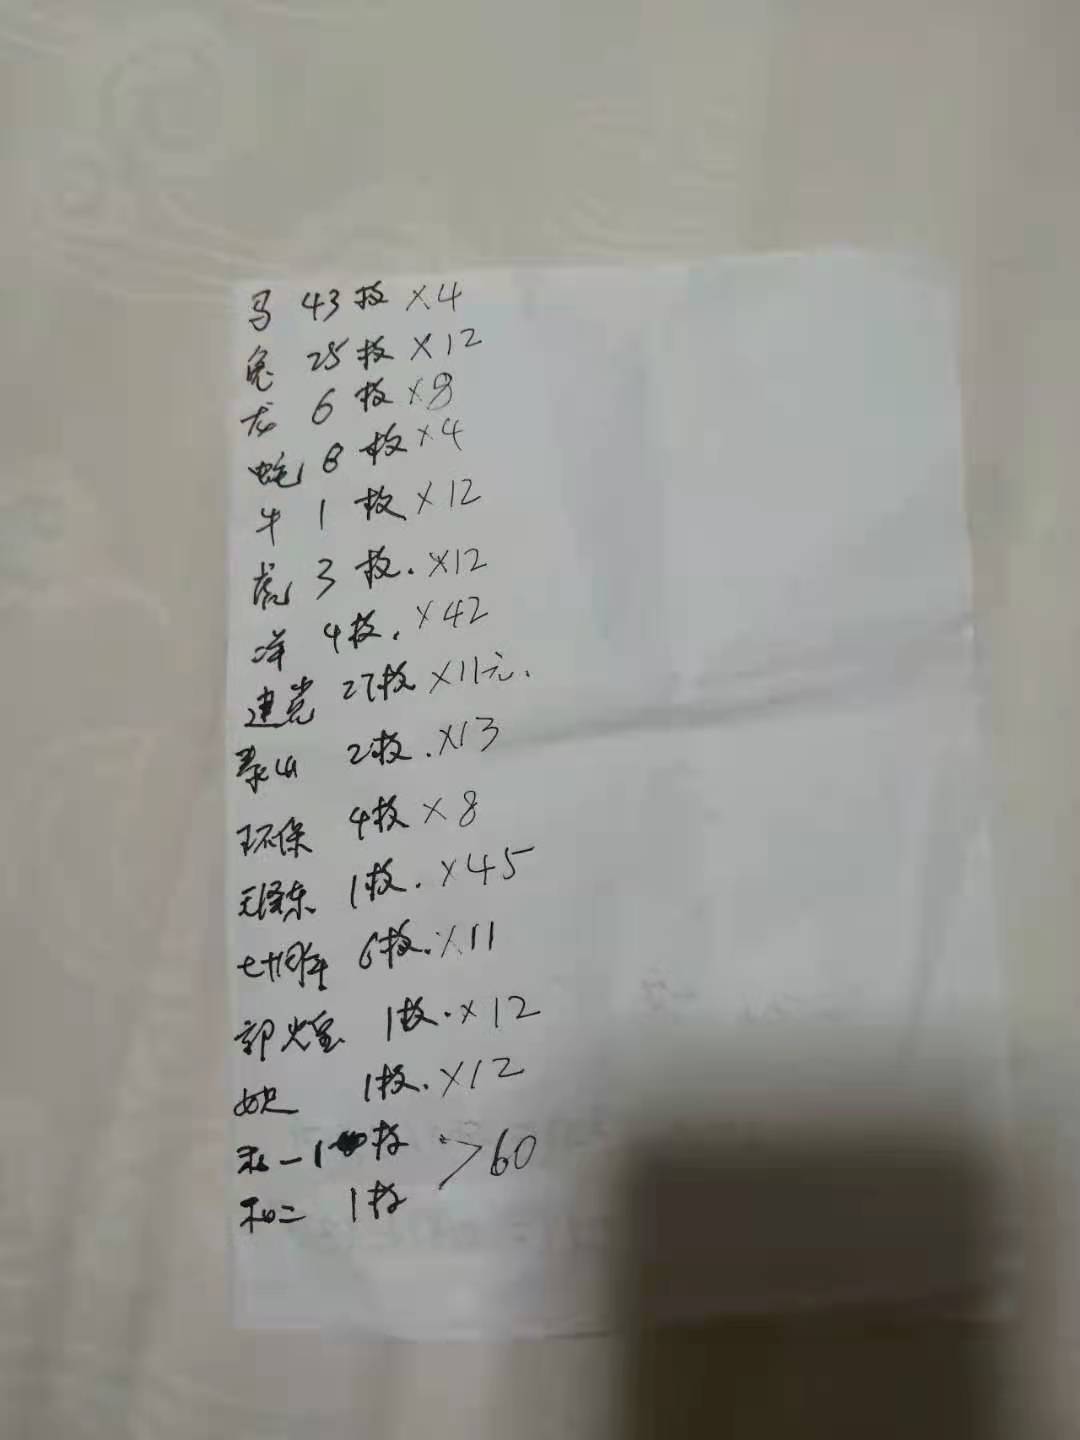 马 43枚 ×4
兔 25枚 ×12
龙 6枚 ×8
蛇 8枚 ×4
牛 1枚 ×12
虎 3枚. ×12
洋 4枚. ×42
建党 27枚 ×11元.
泰山 2枚. ×13
环保 4枚 ×8
毛泽东 1枚. ×45
七十周年 6枚. ×11
郭煌 1枚. ×12
1枚. ×12
和一 1枚 >60
和二 1枚